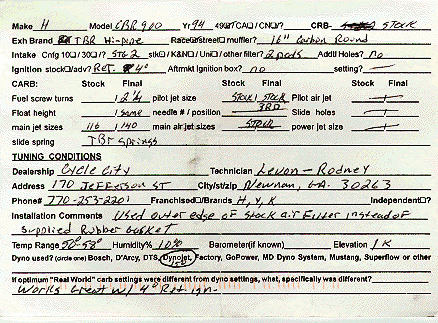 Make H Model CBR 900 Yr 94 49ST CA/ CN/? CRB- STOCK
Exh Brand TBR Hi-pipe Race Street muffler? 16" Carbon Round
Intake Cnfg 10/ 30/ ?/ STG 2 stk K&N/ Uni/ other filter? 2 pods Addtl Holes? no
Ignition stock/adv? RET. 4° Aftrmkt Ignition box? no setting?
CARB: Stock Final Stock Final Stock Final
Fuel screw turns 2¼ pilot jet size STOCK STOCK Pilot air jet
Float height same needle # / position 3RD Slide holes
main jet sizes 116 140 main air jet sizes STOCK power jet size
slide spring TBR Springs
TUNING CONDITIONS
Dealership Cycle City Technician Levon - Rodney
Address 170 Jefferson ST City/st/zip Newnan, GA. 30263
Phone# 770-253-2201 Franchised Brands H, Y, K Independent?
Installation Comments Used outer edge of stock air Filter instead of
Supplied Rubber Gasket
Temp Range 50°-58° Humidity% 10% Barometer(if known) Elevation 1K
Dyno used? (circle one) Bosch, D'Arcy, DTS, Dynojet, Factory, GoPower, MD Dyno System, Mustang, Superflow or other
150
If optimum "Real World" carb settings were different from dyno settings, what, specifically was different?
Works Great w/ 4° Ret-ign-